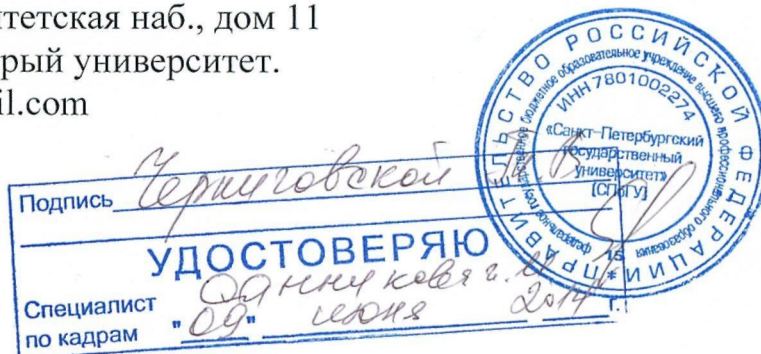 тетская наб., дом 11
рый университет.
il.com
Подпись Черниговской Т.В.
УДОСТОВЕРЯЮ
Специалист
по кадрам
"09" июня 2014 г.
ПРАВИТЕЛЬСТВО РОССИЙСКОЙ ФЕДЕРАЦИИ *
федеральное государственное бюджетное образовательное учреждение высшего профессионального образования
ИНН 7801002274
«Санкт-Петербургский
государственный
университет»
(СПбГУ)
15